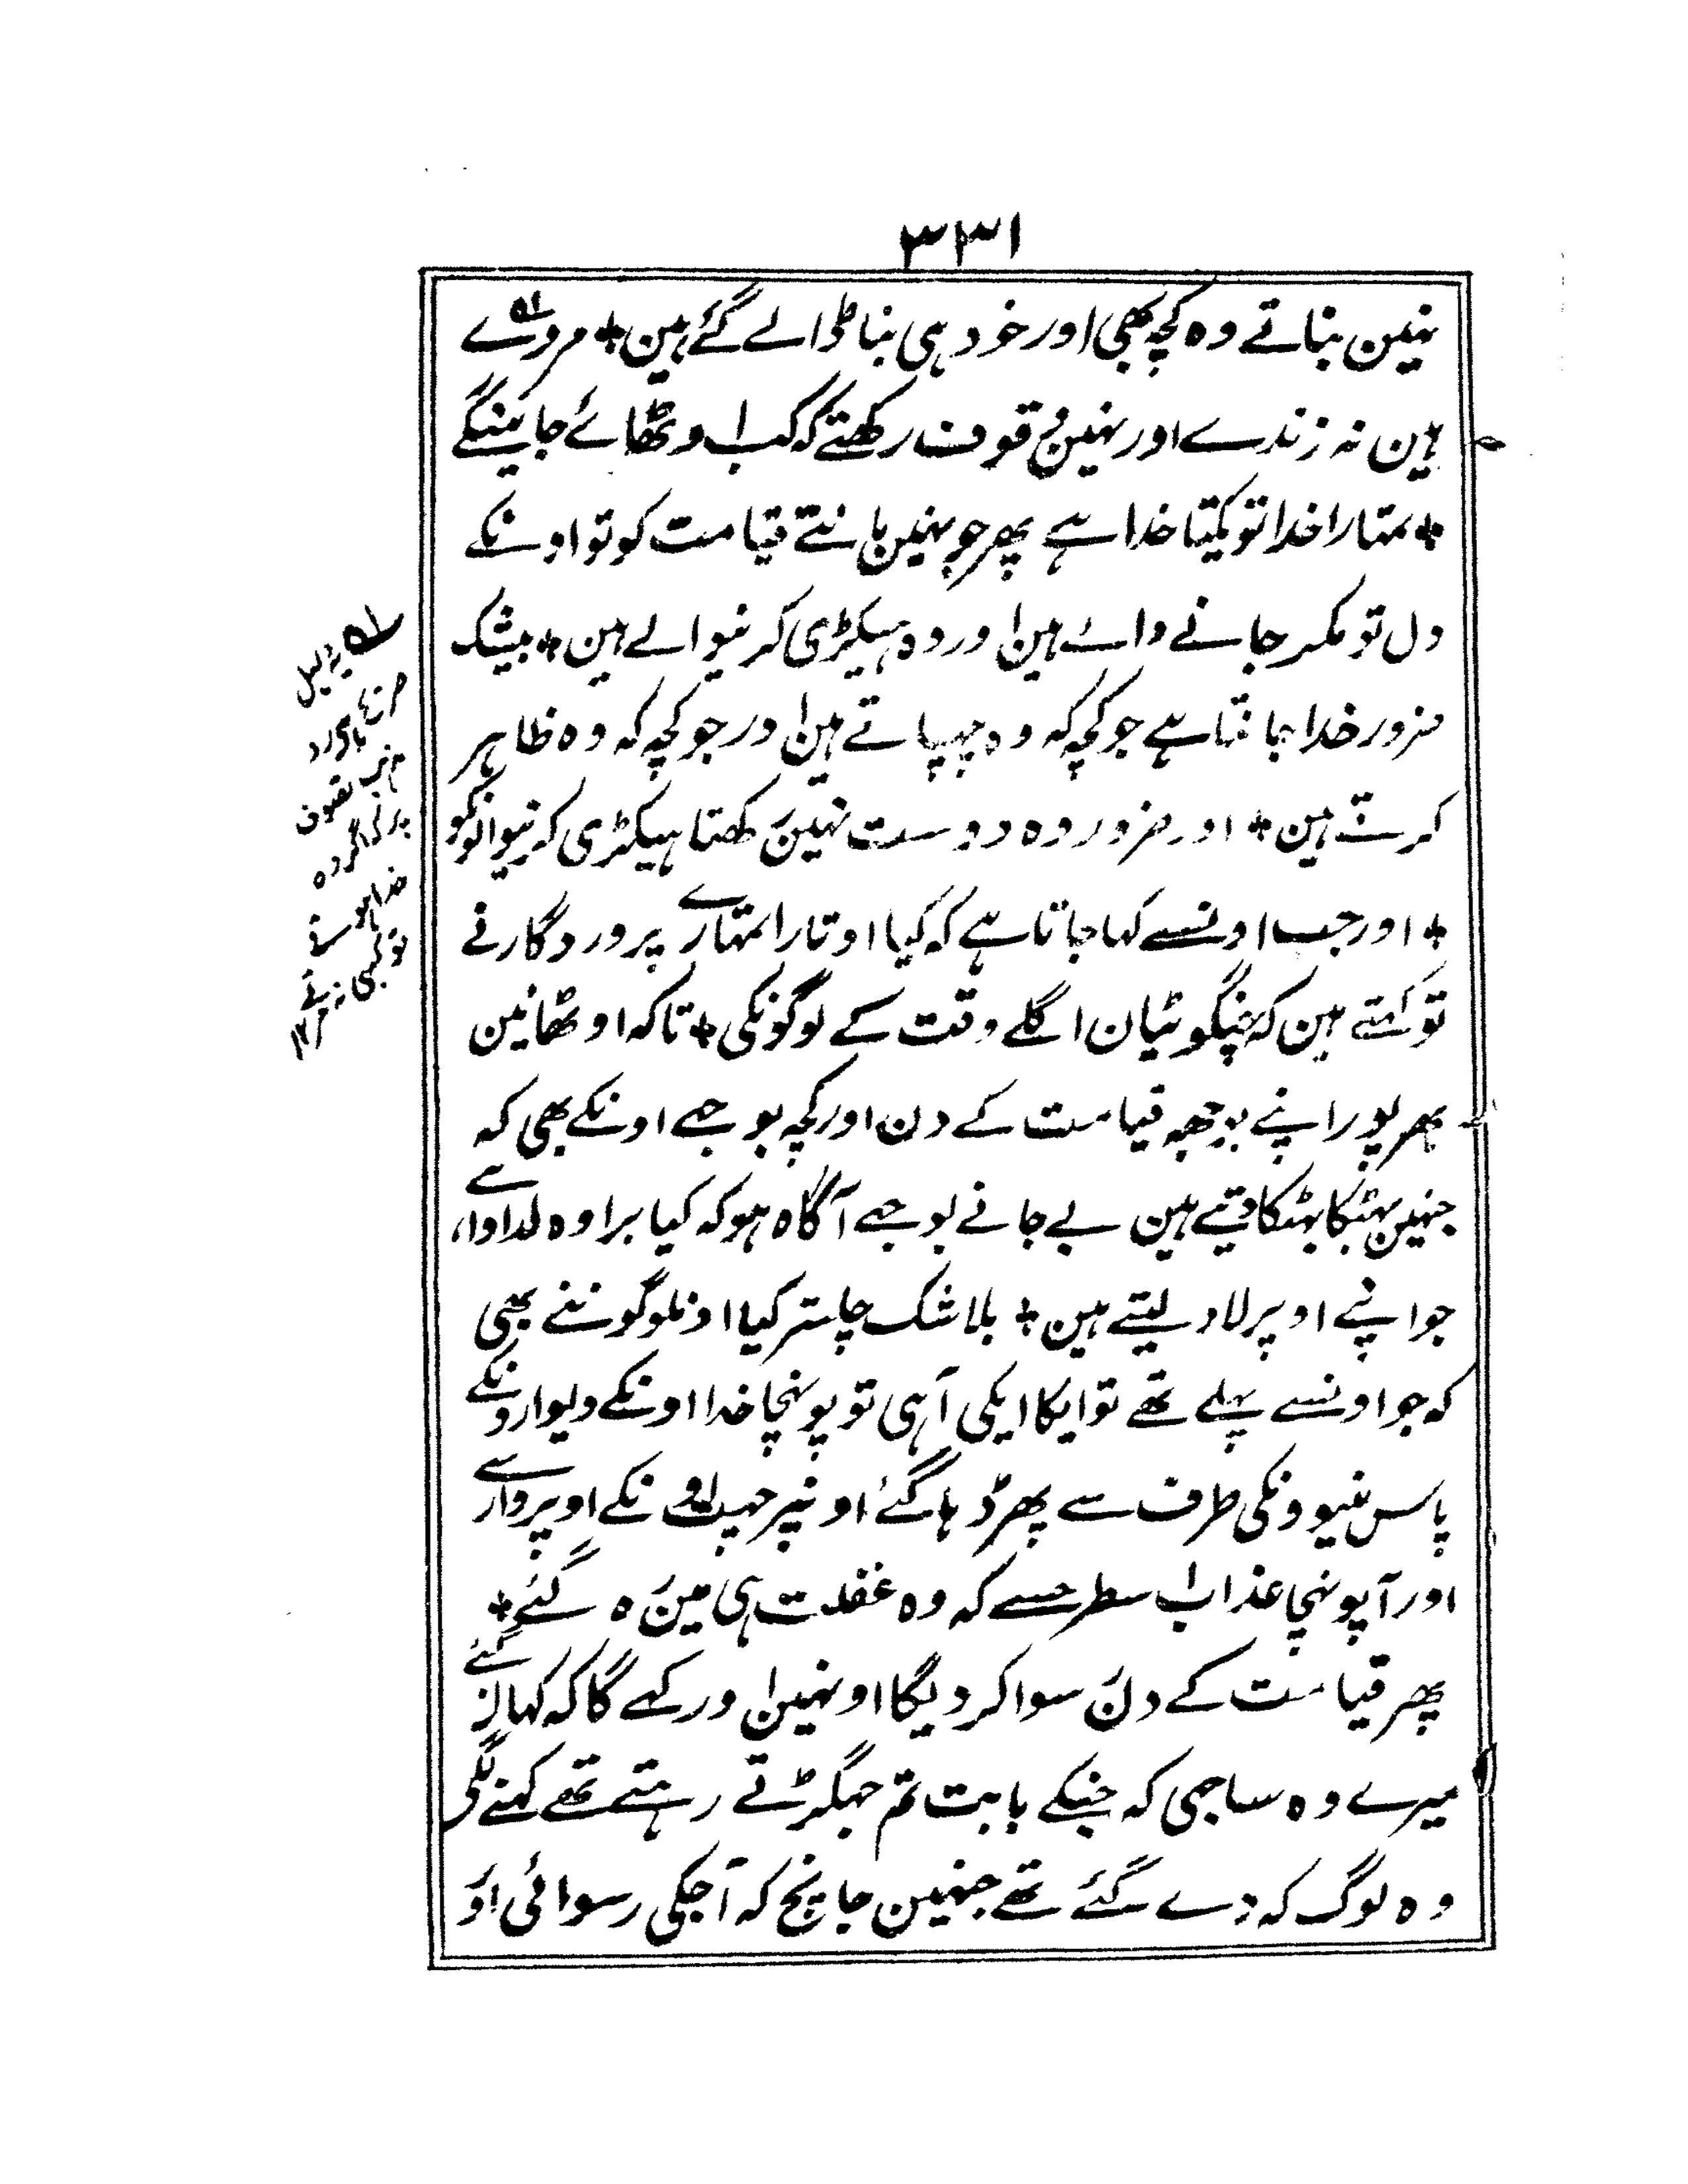 ۳۳۱
نہین بناتے وہ کچہ بھی اور خود ہی بنا ڈالے گئے ہین ٭ مردے
ہین نہ زندے اور نہین وقوف رکھتے کہ کب اوٹھائے جاینگے
٭ تمہارا خدا تو یکتا خدا ہے پھر جو نہین مانتے قیامت کو تو اونکے
دل تو مکر جانے والے ہین اور وہ ہیکڑی کرنیوالے ہین ٭ بیشک
ضرور خدا جانتا ہے جو کچہ کہ وہ چہپاتے ہین اور جو کچہ کہ وہ ظاہر
کرتے ہین ٭ اور ضرور وہ دوست نہین رکھتا ہیکڑی کرنیوالونکو
٭ اور جب اونسے کہا جاتا ہے کہ کیا اوتارا تمہارے پروردگار نے
تو کہتے ہین کہ پنگوٹیان اگلے وقت کے لوگونکی ٭ تاکہ اوٹھائین
بھرپور اپنے بوجھہ قیامت کے دن اور کچہ بوجھے اونکے بھی کہ
جنہین بہٹکا بہٹکا دیتے ہین بے جانے بوجھے آگاہ ہو کہ کیا برا وہ لداوا ہے
جو اپنے اوپر لاد لیتے ہین ٭ بلاشک چلستر کیا اونلوگوننے بھی
کہ جو اونسے پہلے تھے تو ایکا ایکی آہی تو پونہچا خدا اونکے دیوارونکے
پاس نیوونکی طرف سے پھر ڈہا گئے اونپر چہت اونکے اوپروارے سے
اور آپونہچا عذاب اسطرحسے کہ وہ غفلت ہی مین رہ گئے ٭
پھر قیامت کے دن رسوا کر دیگا اونہین اور کہے گا کہ کہان گئے
میرے وہ ساجھی کہ جنکے بابت تم جہگڑتے رہتے تھے کہنے لگے
وہ لوگ کہ دے گئے تھے جنہین جانچ کہ آجکی رسوائی اور